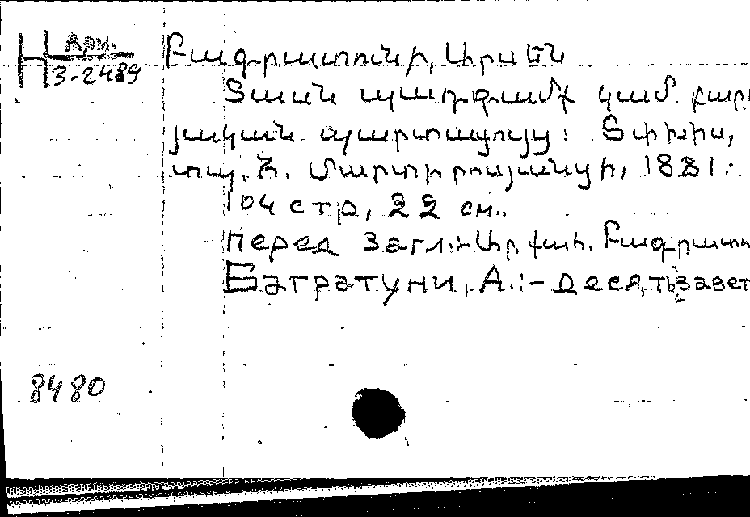 H Арм. 3-2489
Բագրատունի, Արսեն
Տասն պատգամք կամ բարո
յական պարտաւոր։ Տփխիս,
տպ. Մարտիրոսյանսի, 1881.
104 стр, 22 см.
Перед загл.: Багратուն
Багратуни, А.:- Десять завет
8480